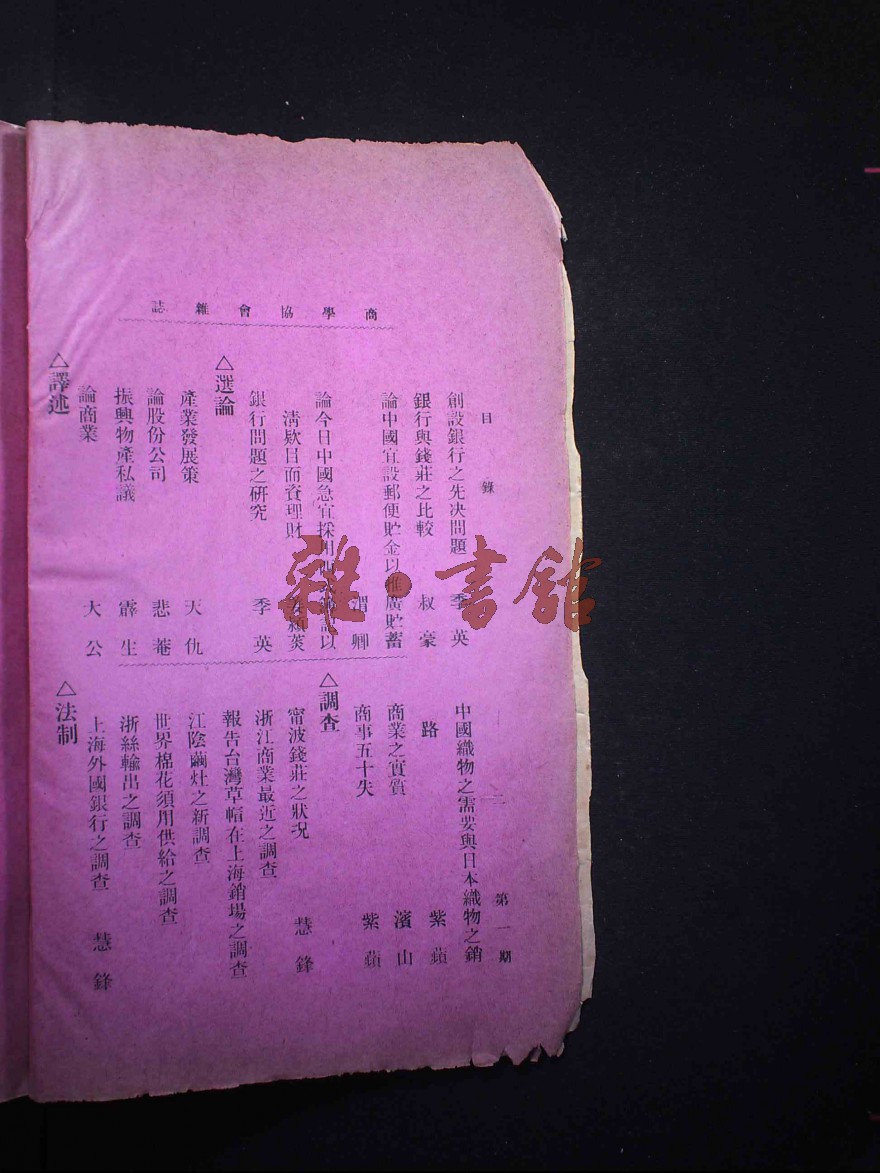 商學協會雜誌
目錄
第一期
創設銀行之先决問題 季英
銀行與錢莊之比較 叔豪
論中國宜設郵便貯金以推廣貯蓄
渭卿
論今日中國急宜採用簿記以
清欵目而資理財
銀行問題之研究 季英
△選論
產業發展策 天仇
論股份公司 悲菴
振興物產私議 霹生
論商業 大公
△譯述
中國織物之需要與日本織物之銷
路 紫蘋
商業之實質 濱山
商事五十失 紫蘋
△調查
甯波錢莊之狀况 慧鋒
浙江商業最近之調查
報告台灣草帽在上海銷場之調查
江陰繭灶之新調查
世界棉花須用供給之調查
浙絲輸出之調查
上海外國銀行之調查 慧鋒
△法制
雜·書館